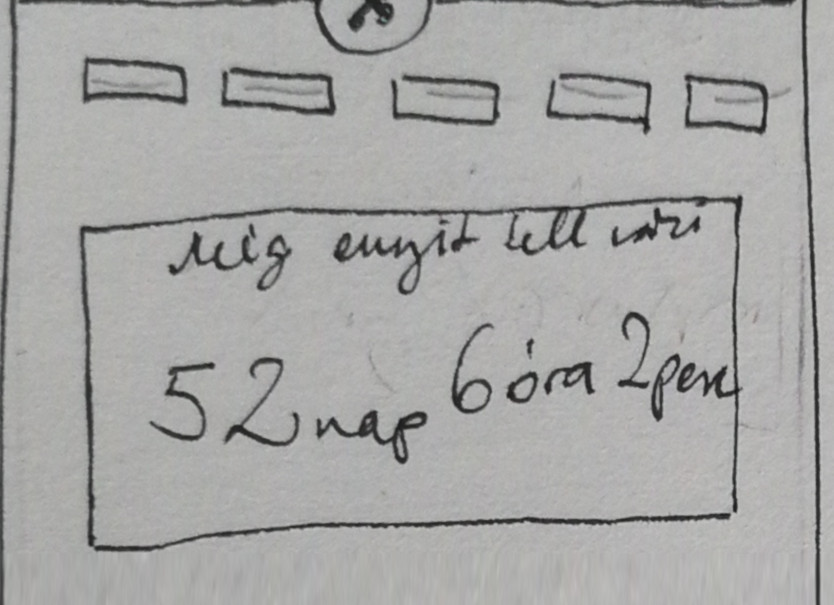 Még ennyit kell várni
52 nap 6 óra 2 perc